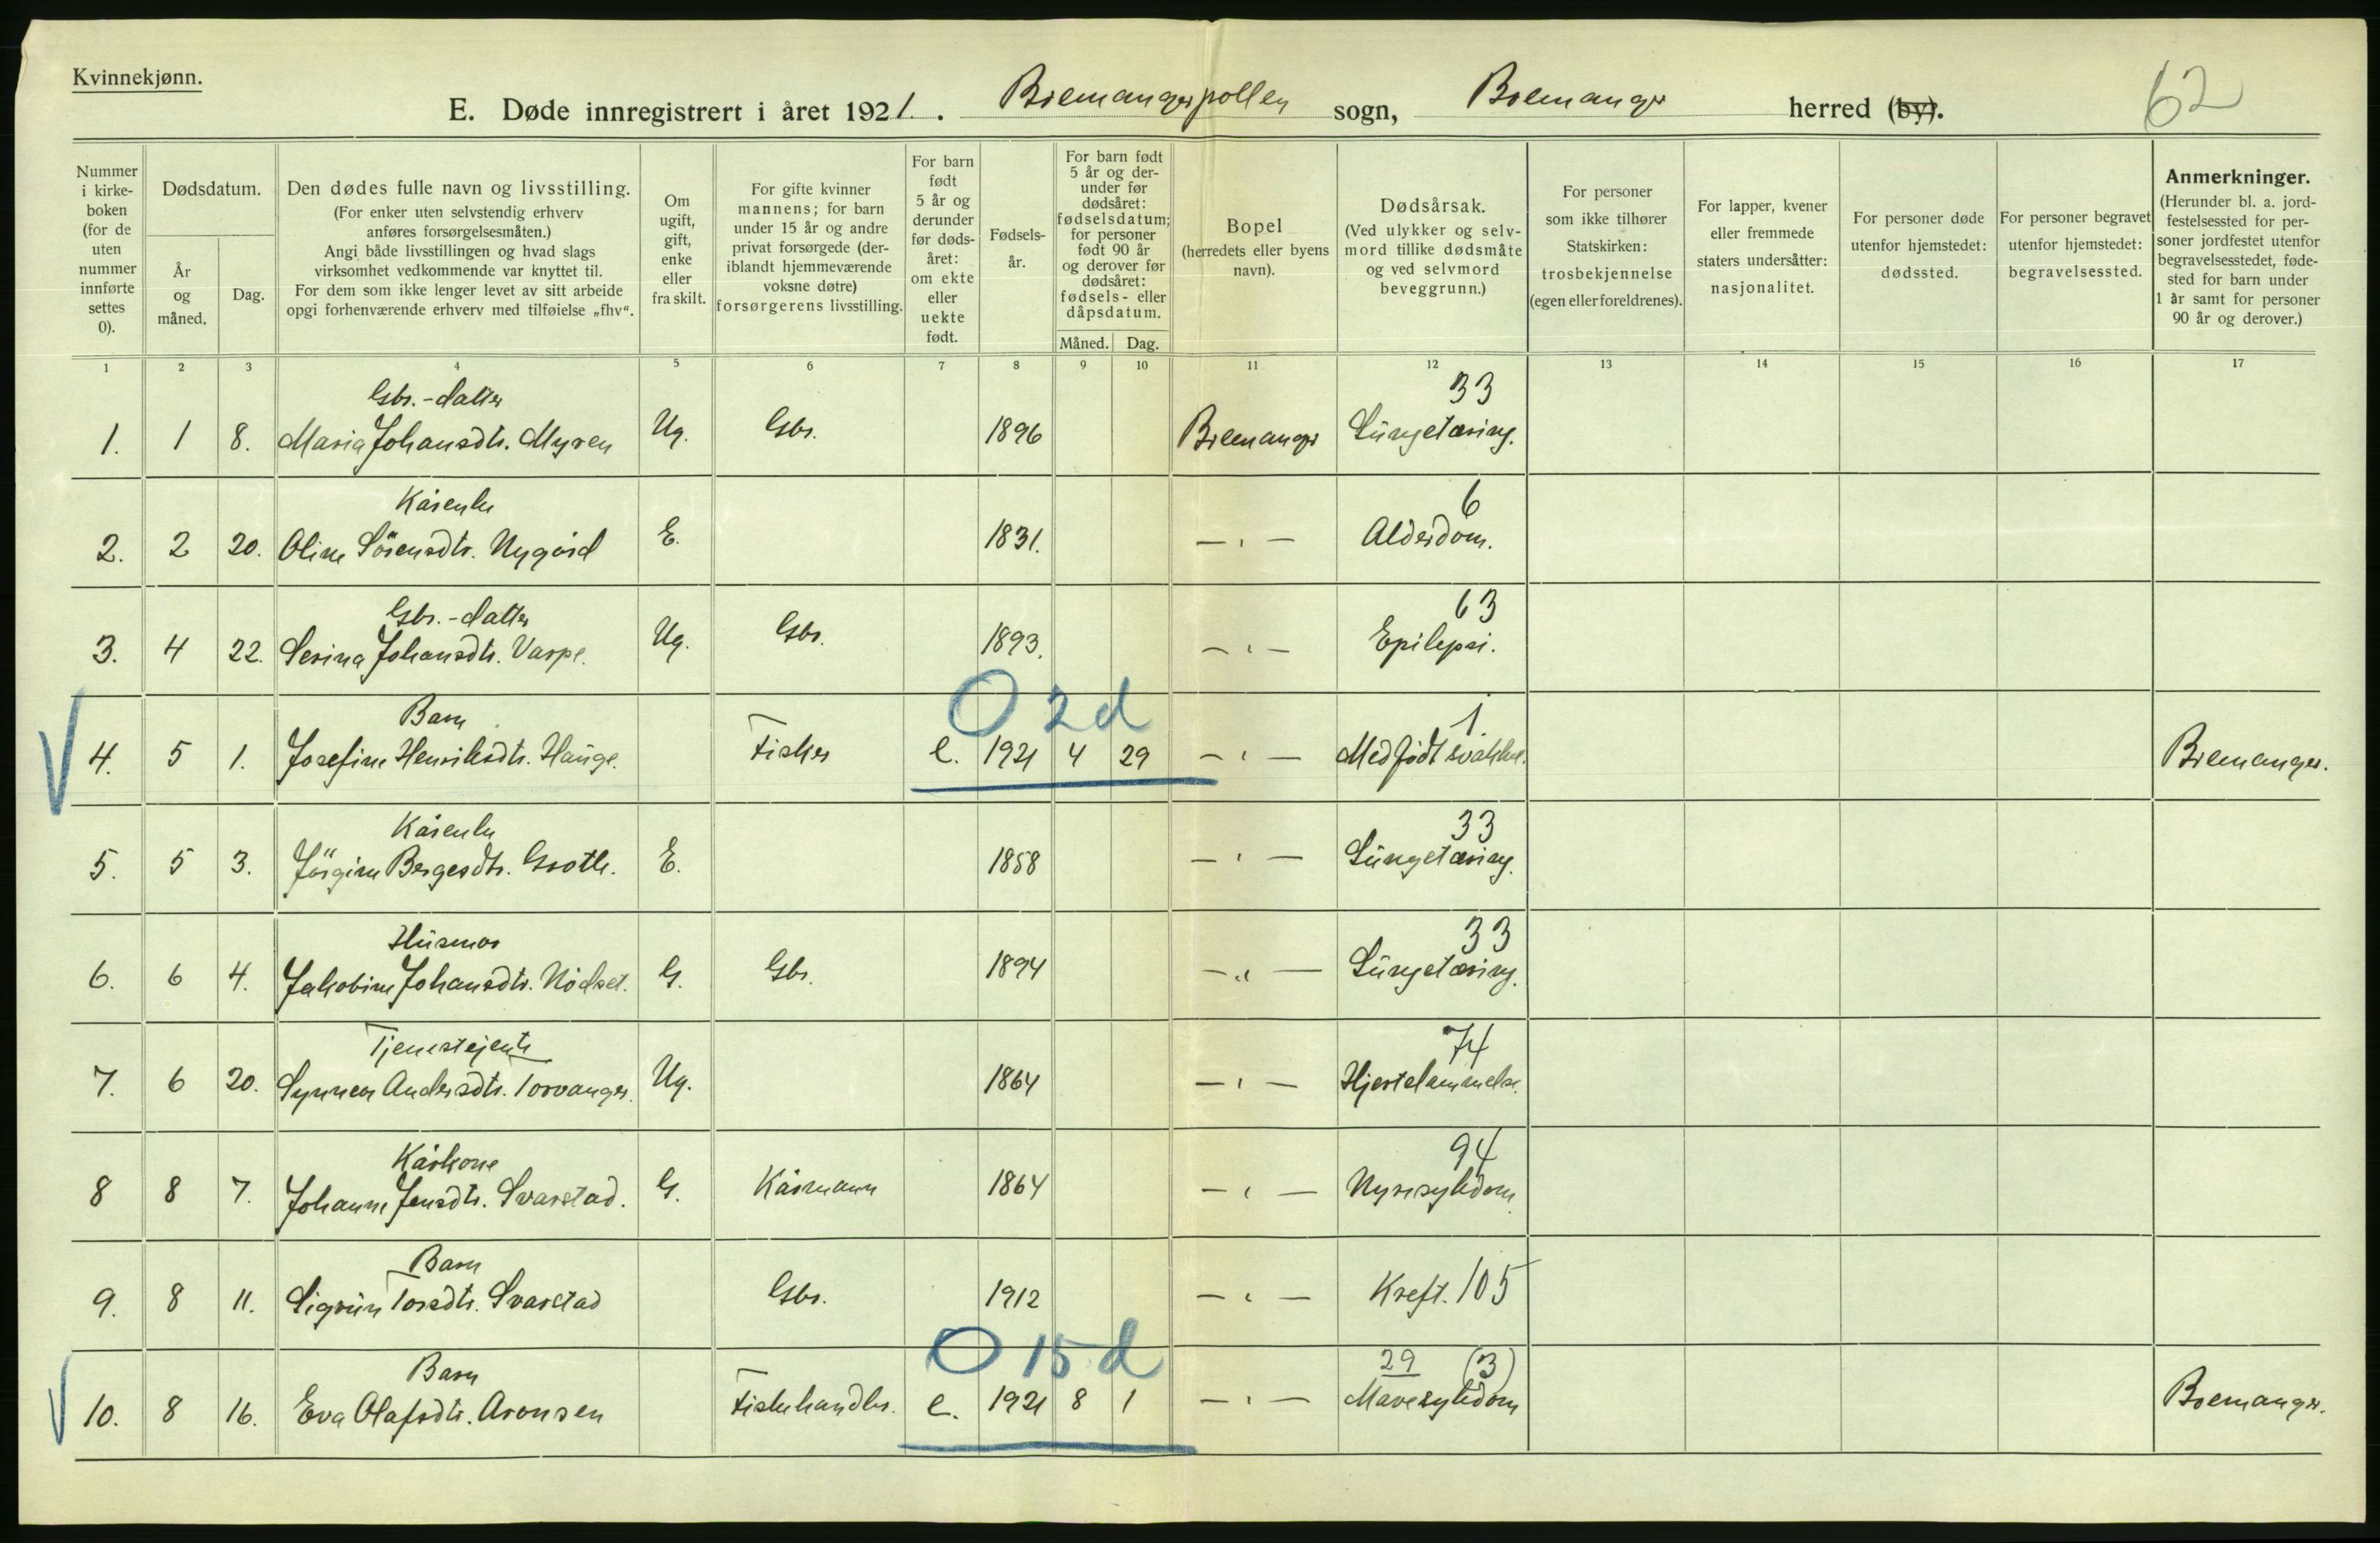 Kvinnekjønn.
E. Døde innregistrert i året 1921. Bremangerpollen sogn, Bremanger herred (by).
62
Nummer i kirkeboken (for de uten nummer innførte settes 0).
Dødsdatum.
År og måned.
Dag.
Den dødes fulle navn og livsstilling.
(For enker uten selvstendig erhverv
anføres forsørgelsesmåten.)
Angi både livsstillingen og hvad slags
virksomhet vedkommende var knyttet til.
For dem som ikke lenger levet av sitt arbeide
opgi forhenværende erhverv med tilføielse „fhv“.
Om ugift, gift, enke eller fraskilt.
For gifte kvinner
mannens; for barn
under 15 år og andre
privat forsørgede (der-
iblandt hjemmeværende
voksne døtre)
forsørgerens livsstilling.
For barn født 5 år og derunder før døds-året: om ekte eller uekte født.
Fødsels-år.
For barn født
5 år og der-
under før
dødsåret:
fødselsdatum;
for personer
født 90 år
og derover før
dødsåret:
fødsels- eller
dåpsdatum.
Måned. Dag.
Bopel
(herredets eller byens
navn).
Dødsårsak.
(Ved ulykker og selv-
mord tillike dødsmåte
og ved selvmord
beveggrunn.)
For personer
som ikke tilhører
Statskirken:
trosbekjennelse
(egen eller foreldrenes).
For lapper, kvener
eller fremmede
staters undersåtter:
nasjonalitet.
For personer døde
utenfor hjemstedet:
dødssted.
For personer begravet
utenfor hjemstedet:
begravelsessted.
Anmerkninger.
(Herunder bl. a. jord-
festelsessted for per-
soner jordfestet utenfor
begravelsesstedet, føde-
sted for barn under
1 år samt for personer
90 år og derover.)
1 2 3 4 5 6 7 8 9 10 11 12 13 14 15 16 17
Gbr.-datter 33
1. 1 8. Maria Johansdtr. Myren Ug. Gbr. 1896 Bremanger Lungetæring.
Kårenke 6
2. 2 20. Oline Sörensdtr. Nygård E. 1831. — " — Alderdom.
Gbr.-datter 63
3. 4 22. Serina Johansdtr. Varpe. Ug. Gbr. 1893. — " — Epilepsi.
Barn O 2d 1.
4. 5 1. Josefine Henriksdtr. Hauge. Fisker e. 1921 4 29 — " — Medfödt svakhet. Bremanger.
Kårenke 33
5. 5 3. Jörgine Bergesdtr. Grotle. E. 1858 — " — Lungetæring.
Husmor 33
6. 6 4. Jakobine Johansdtr. Nödset. G. Gbr. 1894 — " — Lungetæring.
Tjenestejente 74
7. 6 20. Synneva Andersdtr. Torvanger. Ug. 1864 — " — Hjertelammelse.
Kårkone 94
8 8 7. Johanne Jensdtr. Svarstad. G. Kårmann 1864 — " — Nyresykdom
Barn
9. 8 11. Sigrun Torsdtr. Svarstad Gbr. 1912 — " — Kreft. 105
Barn O 15 d 29 (3)
10. 8 16. Eva Olafsdtr. Aronsen Fiskehandler. e. 1921 8 1 — " — Mavesykdom Bremanger.